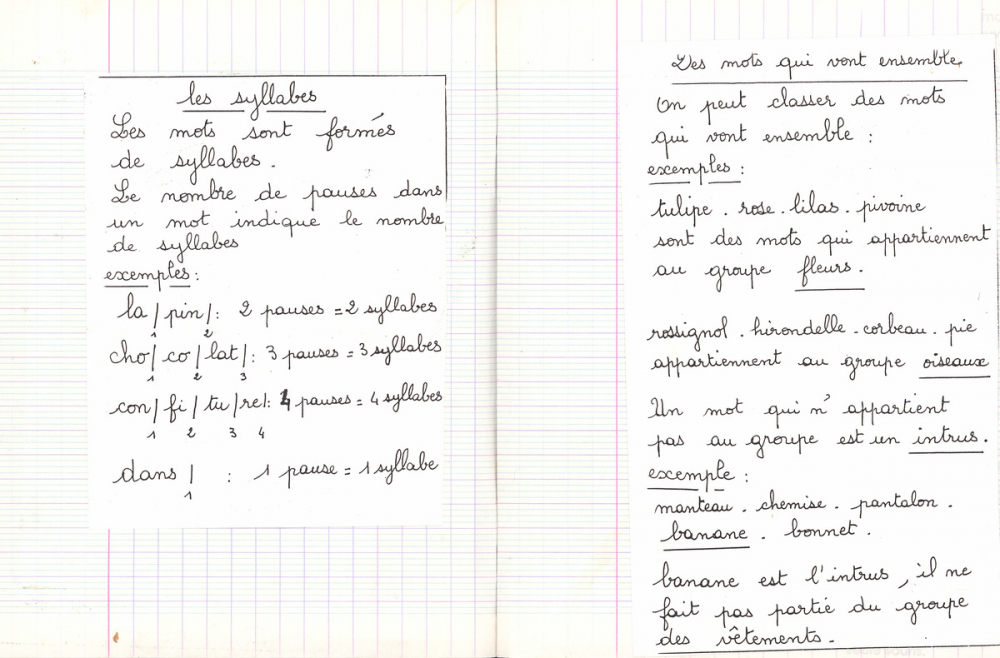 les syllabes
Les mots sont formés
de syllabes.
Le nombre de pauses dans
un mot indique le nombre
de syllabes
exemples :
la / pin / : 2 pauses = 2 syllabes
1 2
cho / co / lat / : 3 pauses = 3 syllabes
1 2 3
con / fi / tu / re / : 4 pauses = 4 syllabes
1 2 3 4
dans / : 1 pause = 1 syllabe
1
Des mots qui vont ensemble.
On peut classer des mots
qui vont ensemble :
exemples :
tulipe . rose . lilas . pivoine
sont des mots qui appartiennent
au groupe fleurs.
rossignol . hirondelle . corbeau . pie
appartiennent au groupe oiseaux
Un mot qui n'appartient
pas au groupe est un intrus.
exemple :
manteau . chemise . pantalon .
banane . bonnet .
banane est l'intrus, il ne
fait pas partie du groupe
des vêtements.